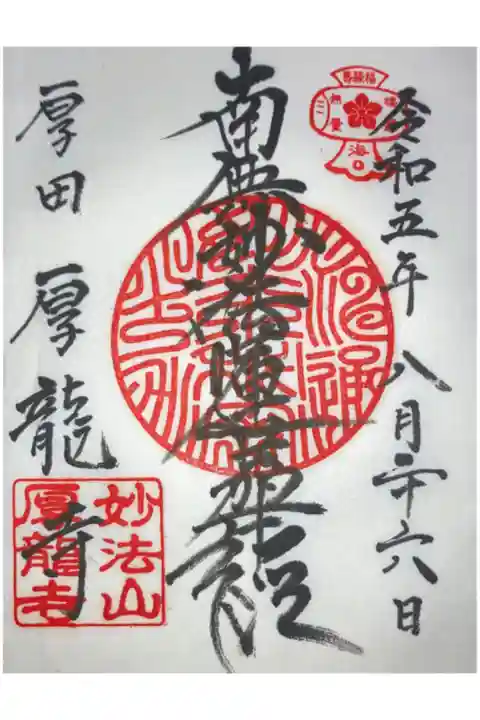 令和五年 八月二十六日
南無妙法蓮華経
厚田 厚龍寺
妙法山
厚龍寺
無量
海